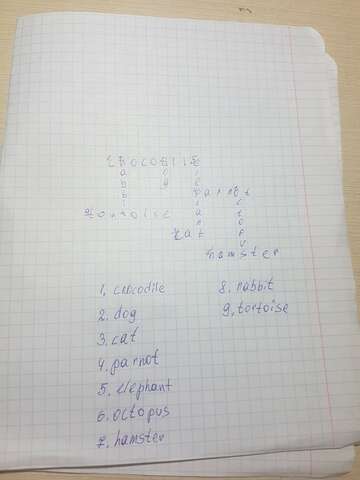 crocodile
parrot
cat
hamster
1. crocodile
2. dog
3. cat
4. parrot
5. elephant
6. octopus
7. hamster
8. rabbit
9. tortoise